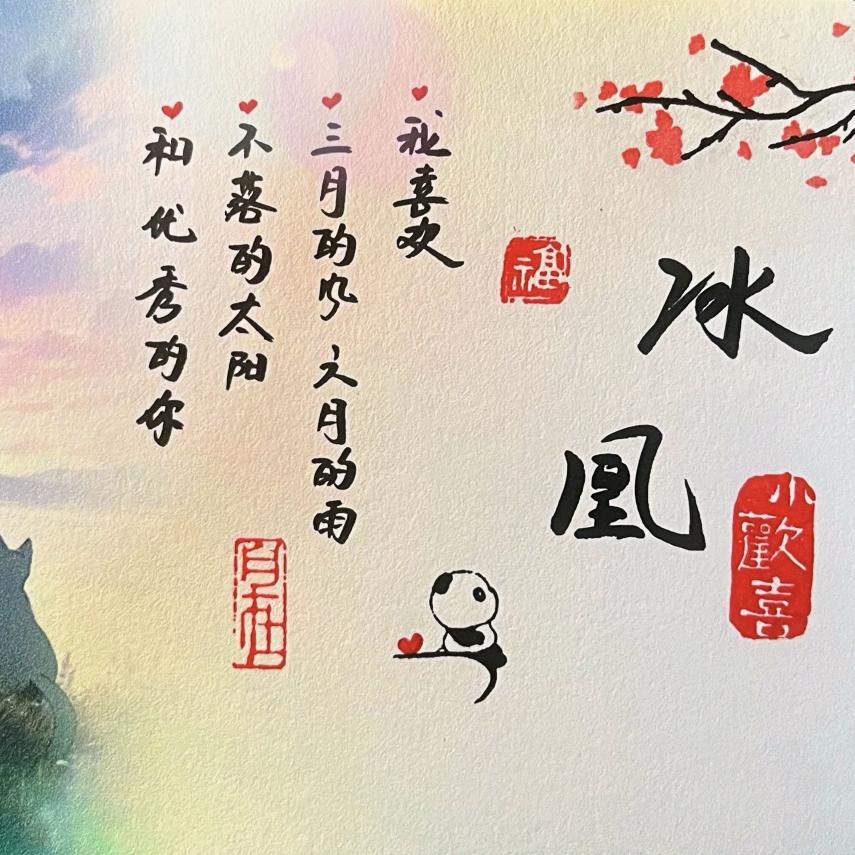 冰凰
小歡喜
福
我喜欢
三月的风 六月的雨
不落的太阳
和优秀的你
自在